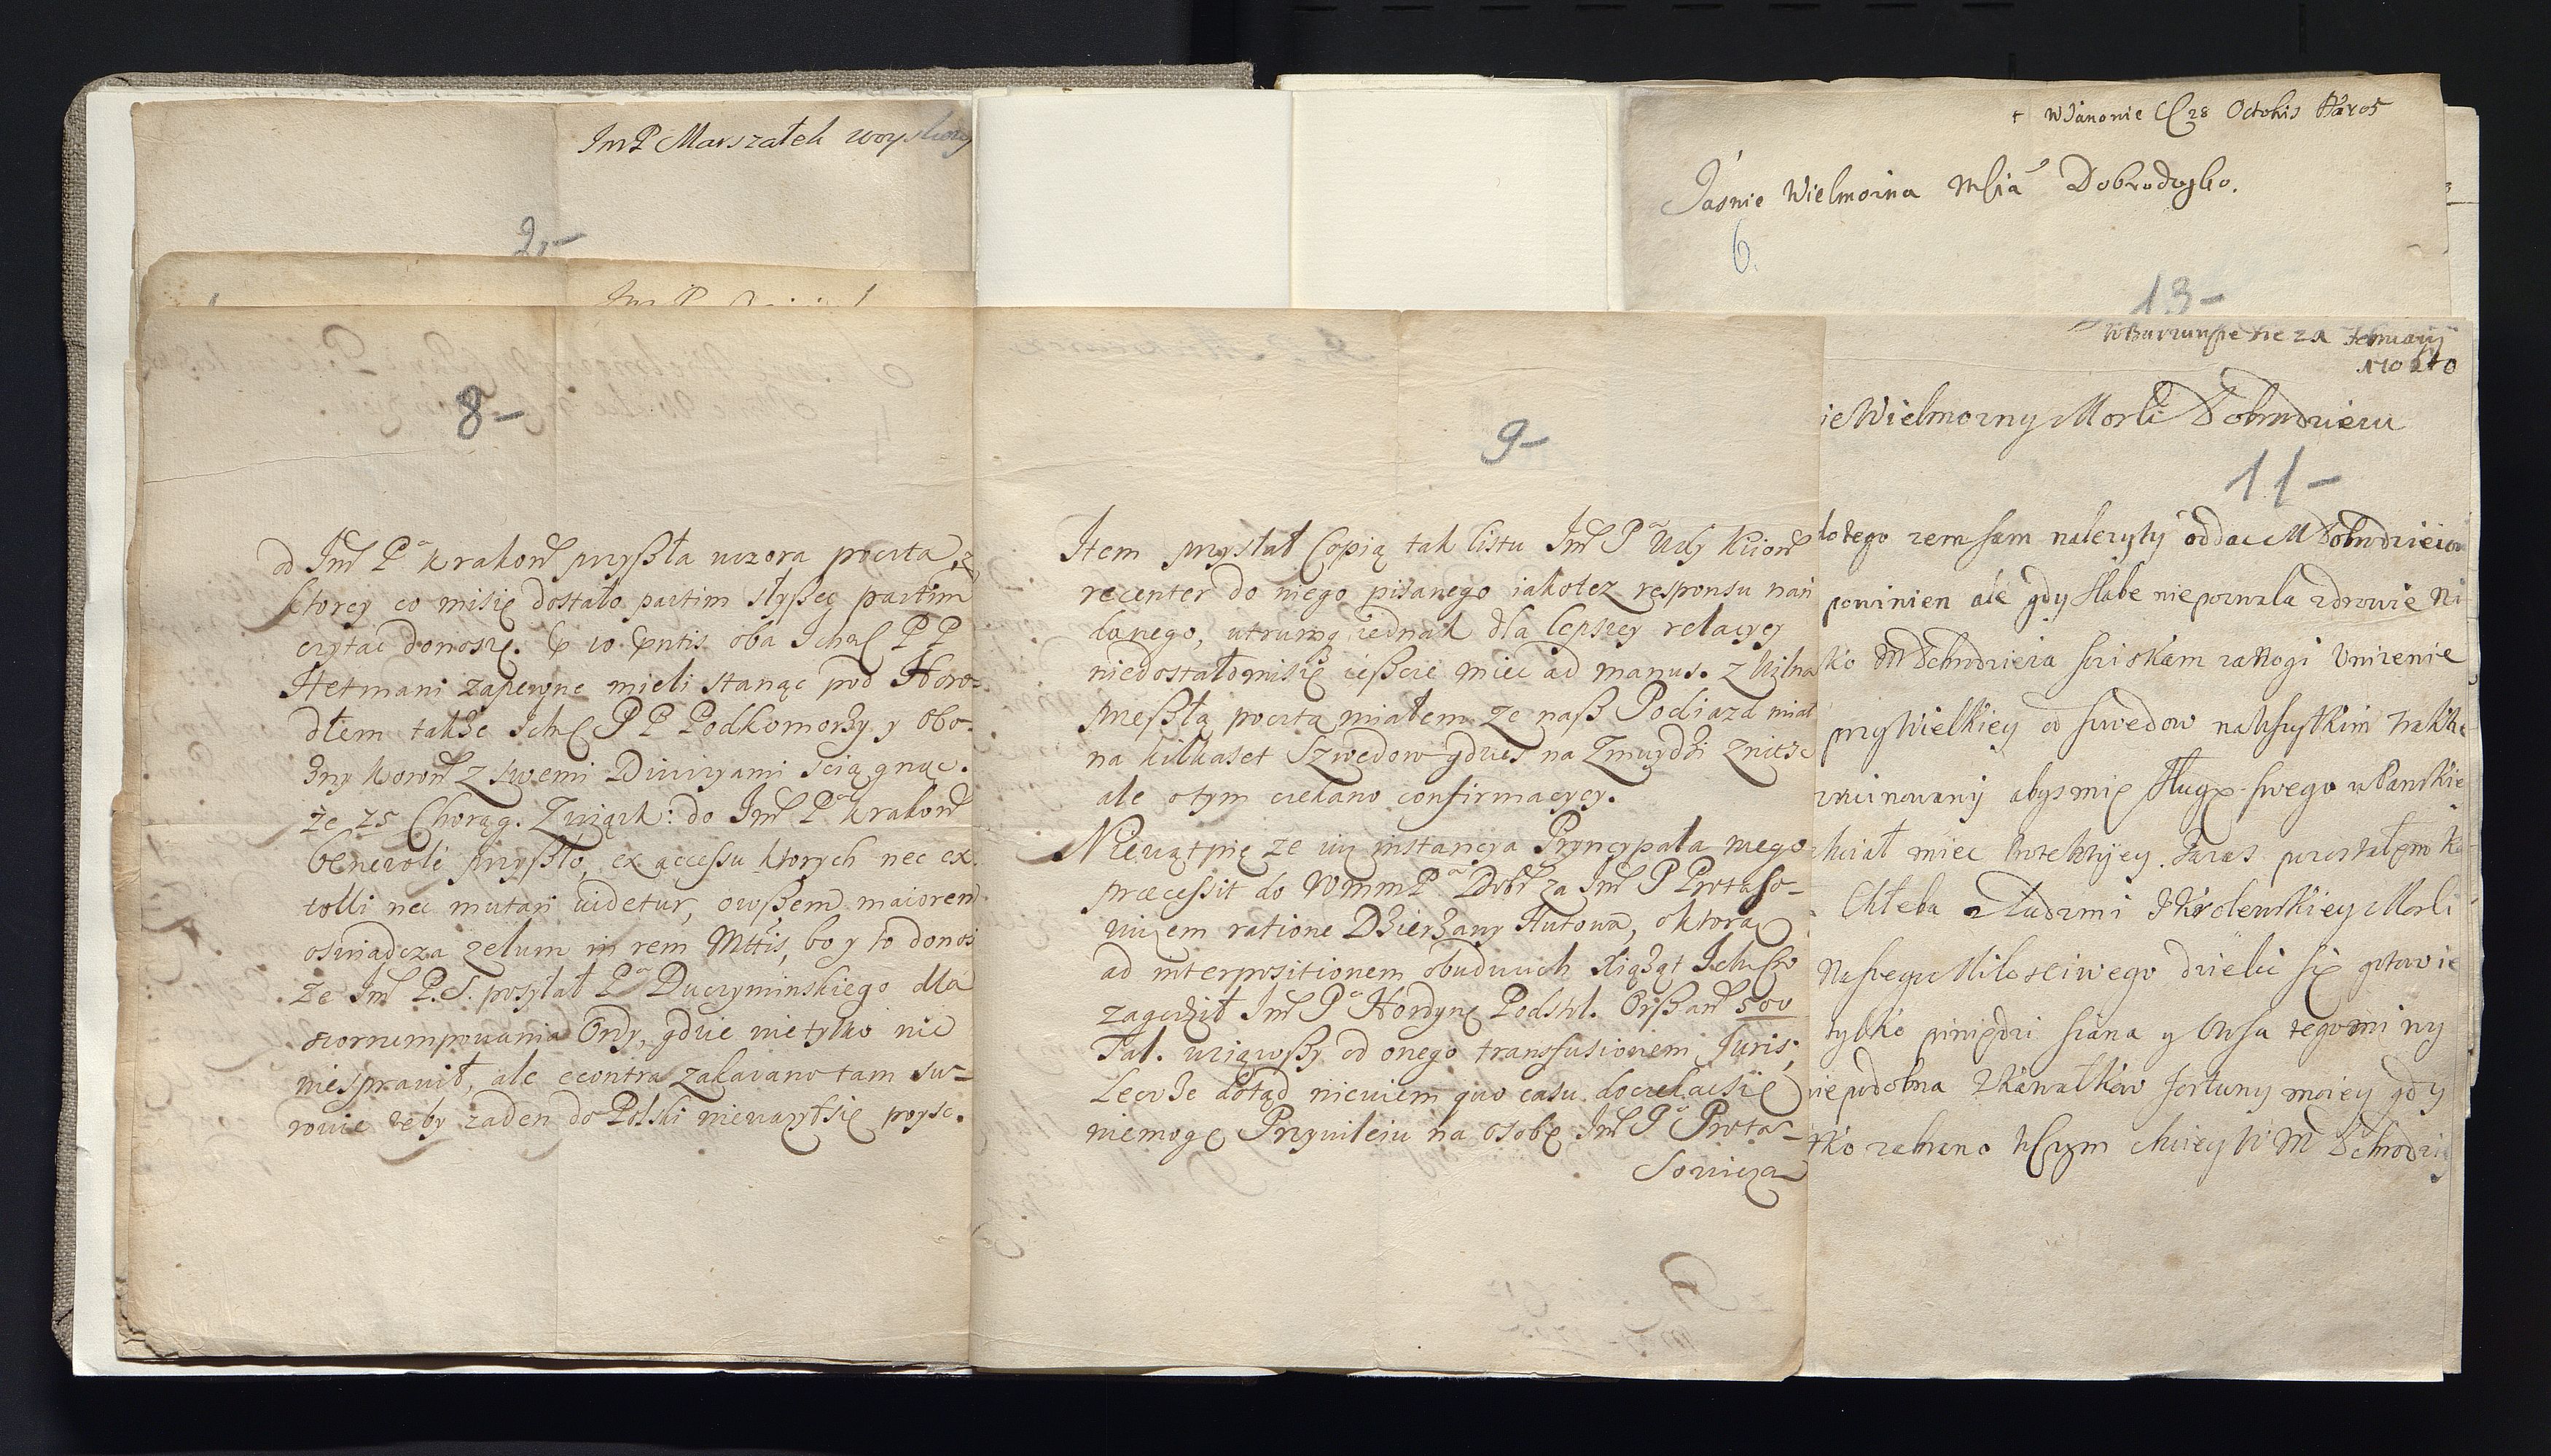 ImP Marszałek woyskowy
2,-
8-
od Jmć Pa krakow przyszła wczora poczta, z
ktorey co misię dostało partim słyszeć partim
czytać donoszę. oba Ichmć PP
Hetmani zapewne mieli stanąć pod Horo-
dłem także Ichmć PP Podkomorzy y Obo-
źny koron z swemi Diwizyami sciągnąć.
że 25 Chorąg. Związk: do Jmć Pa krakow
benevole przyszło, ex accessu ktorych nec ex-
tolli nec mutari videtur, owszem maiorem
oswiadcza zelum in rem Mttis, bo y to donosi
że Jmć P.S. posyłał Pa Duczyminskiego dla
skorrumpowania Ordy, gdzie nie tylko nic
niesprawił, ale econtra zakazano tam su-
rowie żeby zaden do Polski nieważyłsię poyść.
9-
Item przysłał Copią tak listu Jmć P Wdy Kiiow
recenter do niego pisanego iakotez responsu nań
danego, utrumq iednak dla lepszey relacyey
niedostałomisię ieszcze mieć ad manus. z Wilna
przeszłą pocztą miałem ze nasz Podiazd miał
na kilkaset Szwedow gdzieś na Zmuydzi zniesć
ale otym czekano confirmacyey.
Niewątpię ze iuz instancya Pryncypała mego
præcessit do WmmPa Dobr za Jmć P Protaso-
wiczem ratione Dzierżawy Hutowa, oktorą
ad interpositionem obudwuch xiążąt Ichmć
zagodził Jmć Pa Hordynę Podstol. Orszań 500
Tal. wziąwszy od onego transfusionem Juris,
Lecz że dotąd niewiem quo casu doczekacsię
niemogę Przywileiu na osobę Jmć Pa Protas-
sowicza
+ W Janowie d 28 Octobris
Jaśnie Wielmożna Mścia Dobrodzyko.
6.
13-
Februarij
ie Wielmozny Mosci Dobrodzieiu
11-
do tego zem sam nalezyty oddac M Dobrodzieiow
powinien ale gdy słabe niepozwala zdrowie Ni
sko Dobrodzieia sciskam za Nogi Unizenie
przy Wielkiey od szwedow na wszystkim trakto
zruinowany abysmię sługę swego w Panskie
chciał miec Protektiey. Zaras pozostałym ka
Chleba z Ludzmi J Krolewskiey Mosci
Naszego Miłosciwego dzielić się gotowie
tylko pieniędzi siana y Owsa tegominy
niepodobna z kawałkow fortuny moiey gdy
tko zabrano Wczym chciey W M Dobrodzi